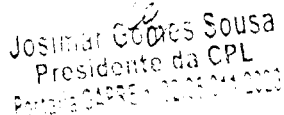 Josimar Gomes Sousa
Presidente da CPL
Portaria